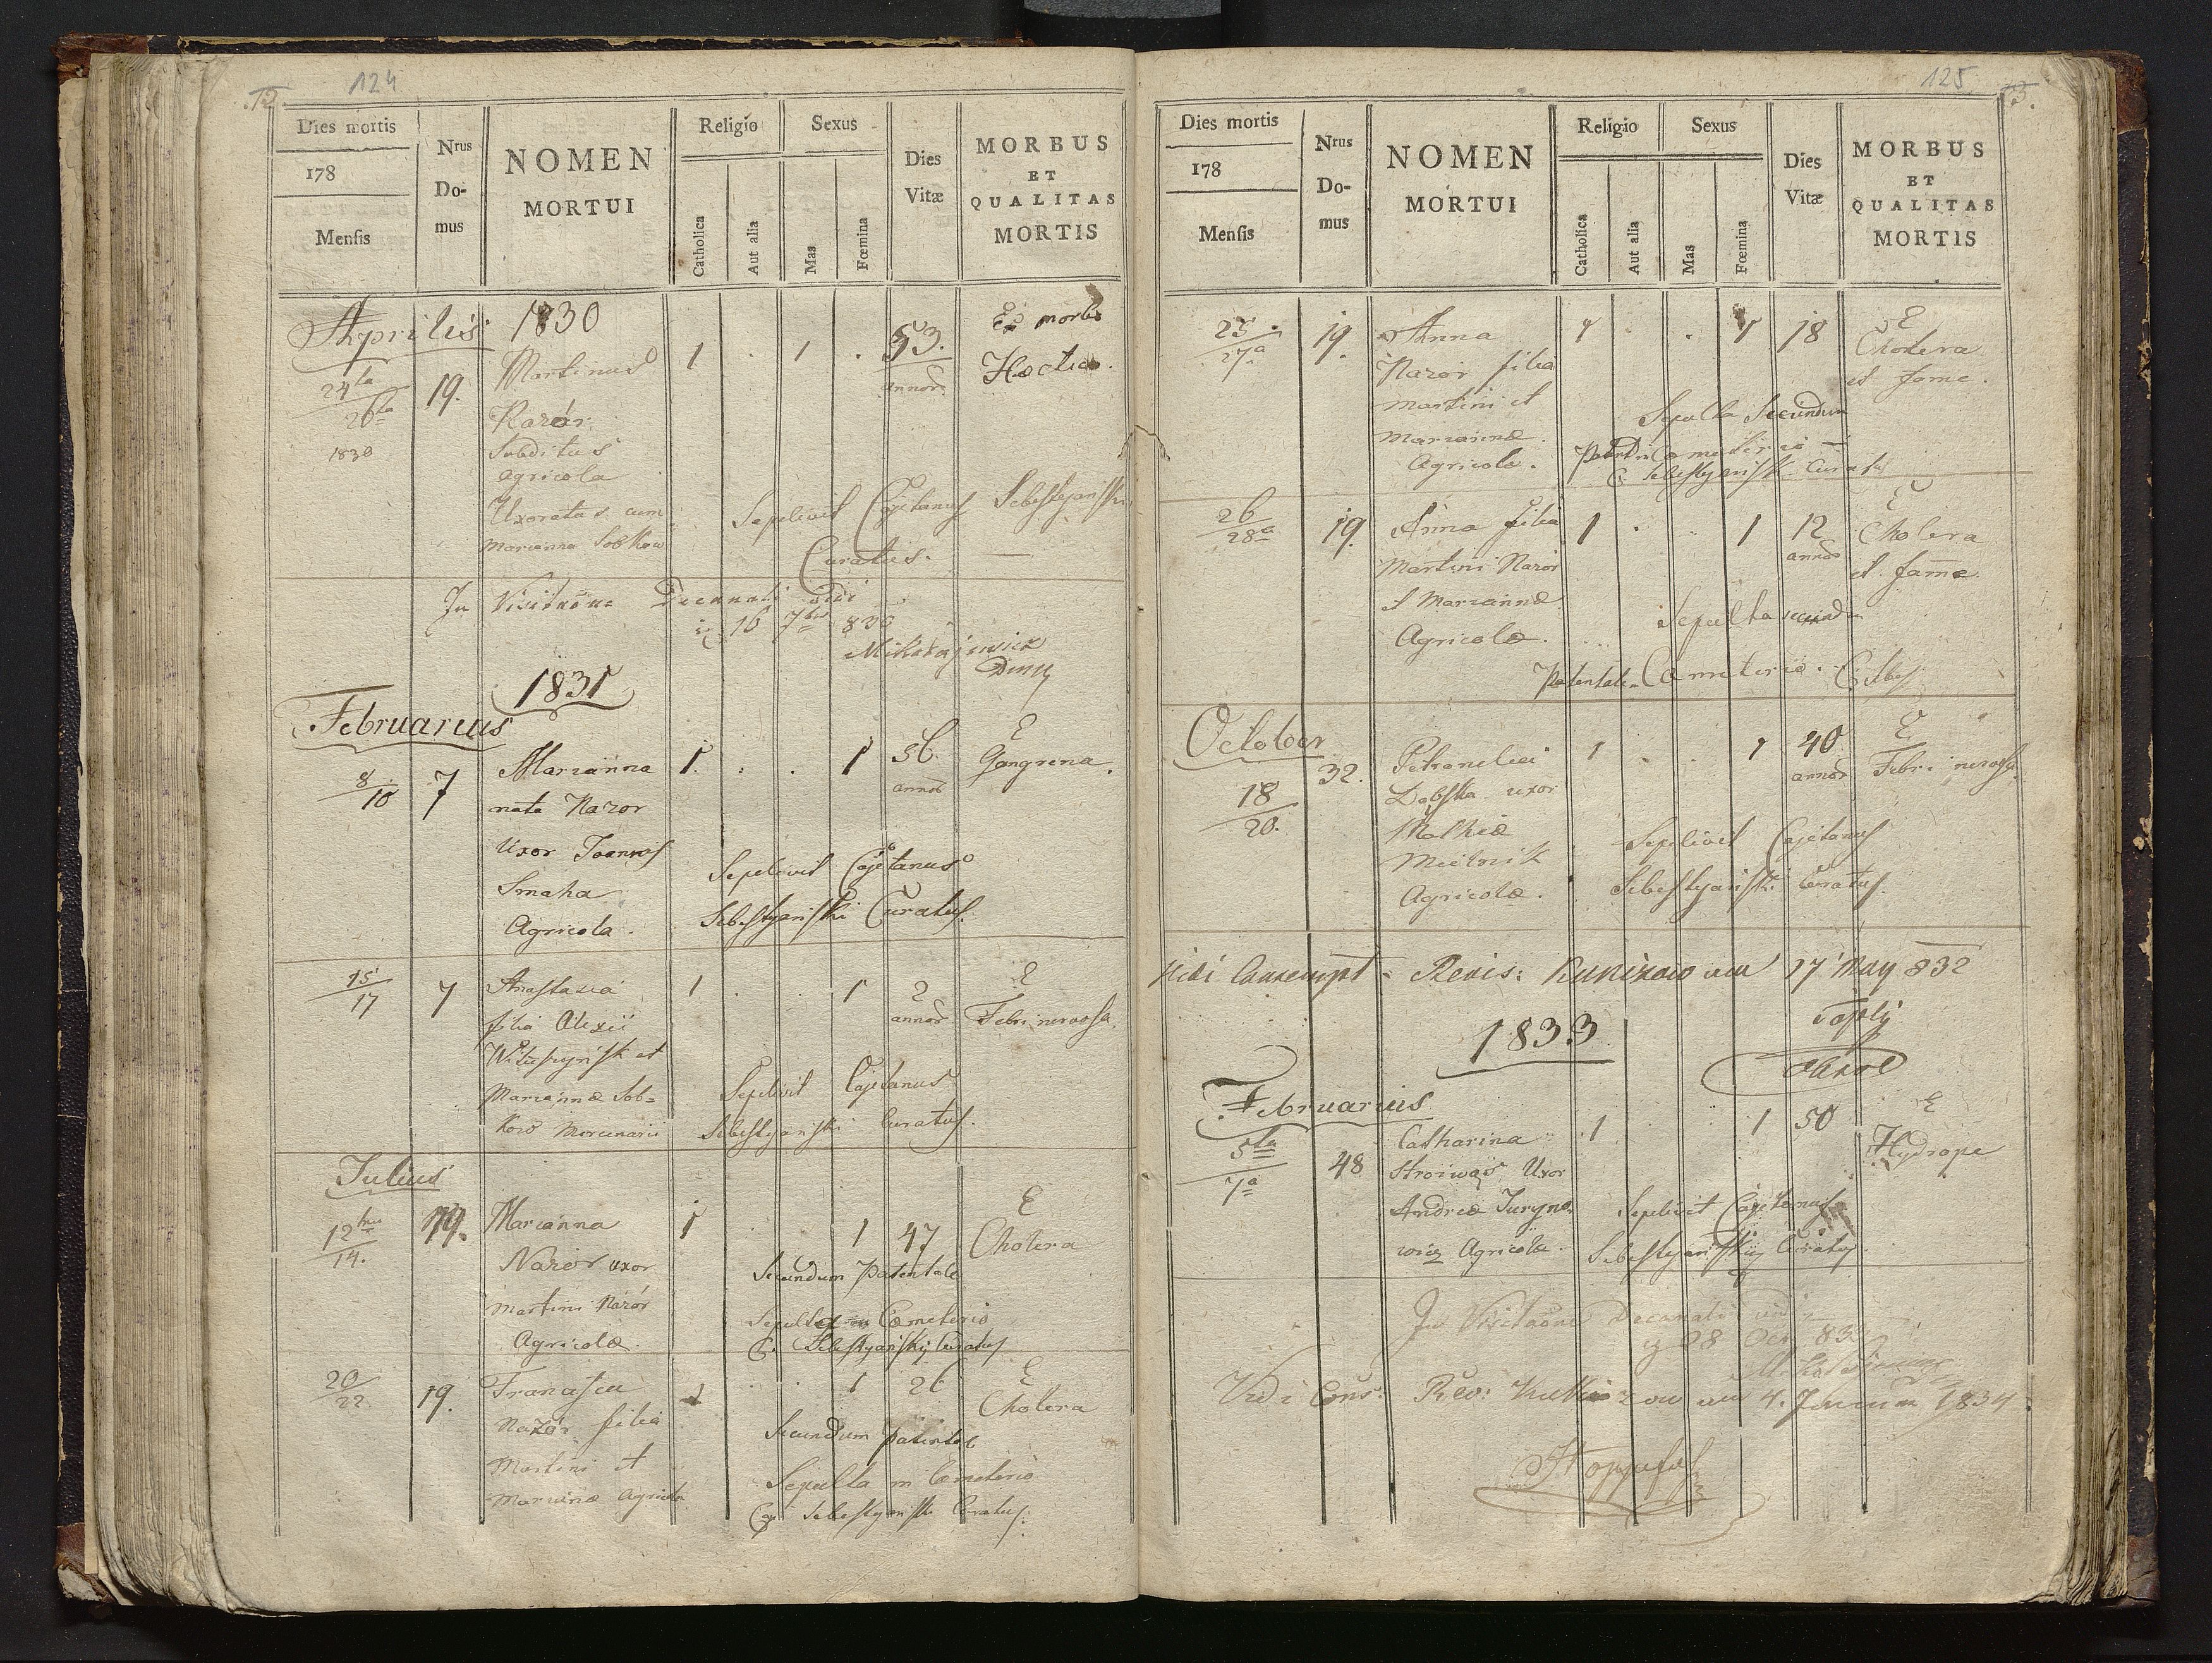 72.
124
Dies mortis
178
Mensis
Nrus Do-mus
NOMEN
MORTUI
Religio
Catholica
Aut alia
Sexus
Mas
Fœmina
Dies
Vitæ
MORBUS
ET
QUALITAS
MORTIS
Aprilis 1830
24ta
26ta
1830
19.
Martinus
Nazór
Subditus
agricola
Uxoratus cum
Marianna Sobkow
1 . 1 .
53.
annor
Ex morbo
Hectico.
Sepelivit Cajetanus Sebestyański
Curatus.
In Visitaõne Decanali
16 7bris 830
1831
Februarius
8/10
7
Marianna
nata Nazor
Uxor Joannis
Smaha
Agricola.
1. . . 1
56
annor
E
Gangrena.
Sepelivit Cajetanus
Sebestyański Curatus.
15/17
7
Anastasia
filia Alexii
et
Mariannæ Sob=
kow Mercenarii
1 . . 1
2
annor
E
Febri nervosa.
Sepelivit Cajetanus
Sebestyański Curatus.
Julius
12
14.
19.
Marianna
Nazór uxor
Martini Nazór
Agricolæ.
1 1
47
E
Cholera
Secundum Patentale
Sepulta Cæmeterio
C. Sebestyański Curatus
20/22
19.
Francisca
Nazór filia
Martini et
Mariannæ Agricolæ
1 . . 1
26
E
Cholera
Secundum patental
Sepulta in Cæmeterio
Caj Sebestyański Curatus.
125
73.
Dies mortis
178
Mensis
Nrus Do-mus
NOMEN
MORTUI
Religio
Catholica
Aut alia
Sexus
Mas
Fœmina
Dies
Vitæ
MORBUS
ET
QUALITAS
MORTIS
25.
27a
19.
Anna
Nazór filia
Martini et
Mariannæ.
Agricolæ.
1 . . 1
18
E
Cholera
et fame.
Sepulta Secundum
Cæmeterio
C. Sebestyański Curatus
26
28a
19.
Anna filia
Martini Nazór
et Mariannæ
Agricolæ.
1 . . 1
12
annor
E
Cholera
et fame.
Sepulta secundum
Patentale Cæmeterio. C. Sebes
October
18
20.
32.
Petronella
Dobska uxor
Mathiæ
Mielnik
Agricolæ.
1 . . 1
40
annor
E
Febri nervosa.
Sepelivit Cajetanus
Sebestyański Curatus.
Vidi Revis: Kunizow am 17 May 832
1833
Februarius
5ta
7a
48
Catharina
Stroiwąs Uxor
Andreæ Juryno
wicz Agricolæ.
1 . . 1
50
E
Hydrope
Sepelivit Cajetanus
Sebestyańskij Curatus.
In Visitaõne Decanali
28
Vidi Cons: Rev: am 4. 1834.